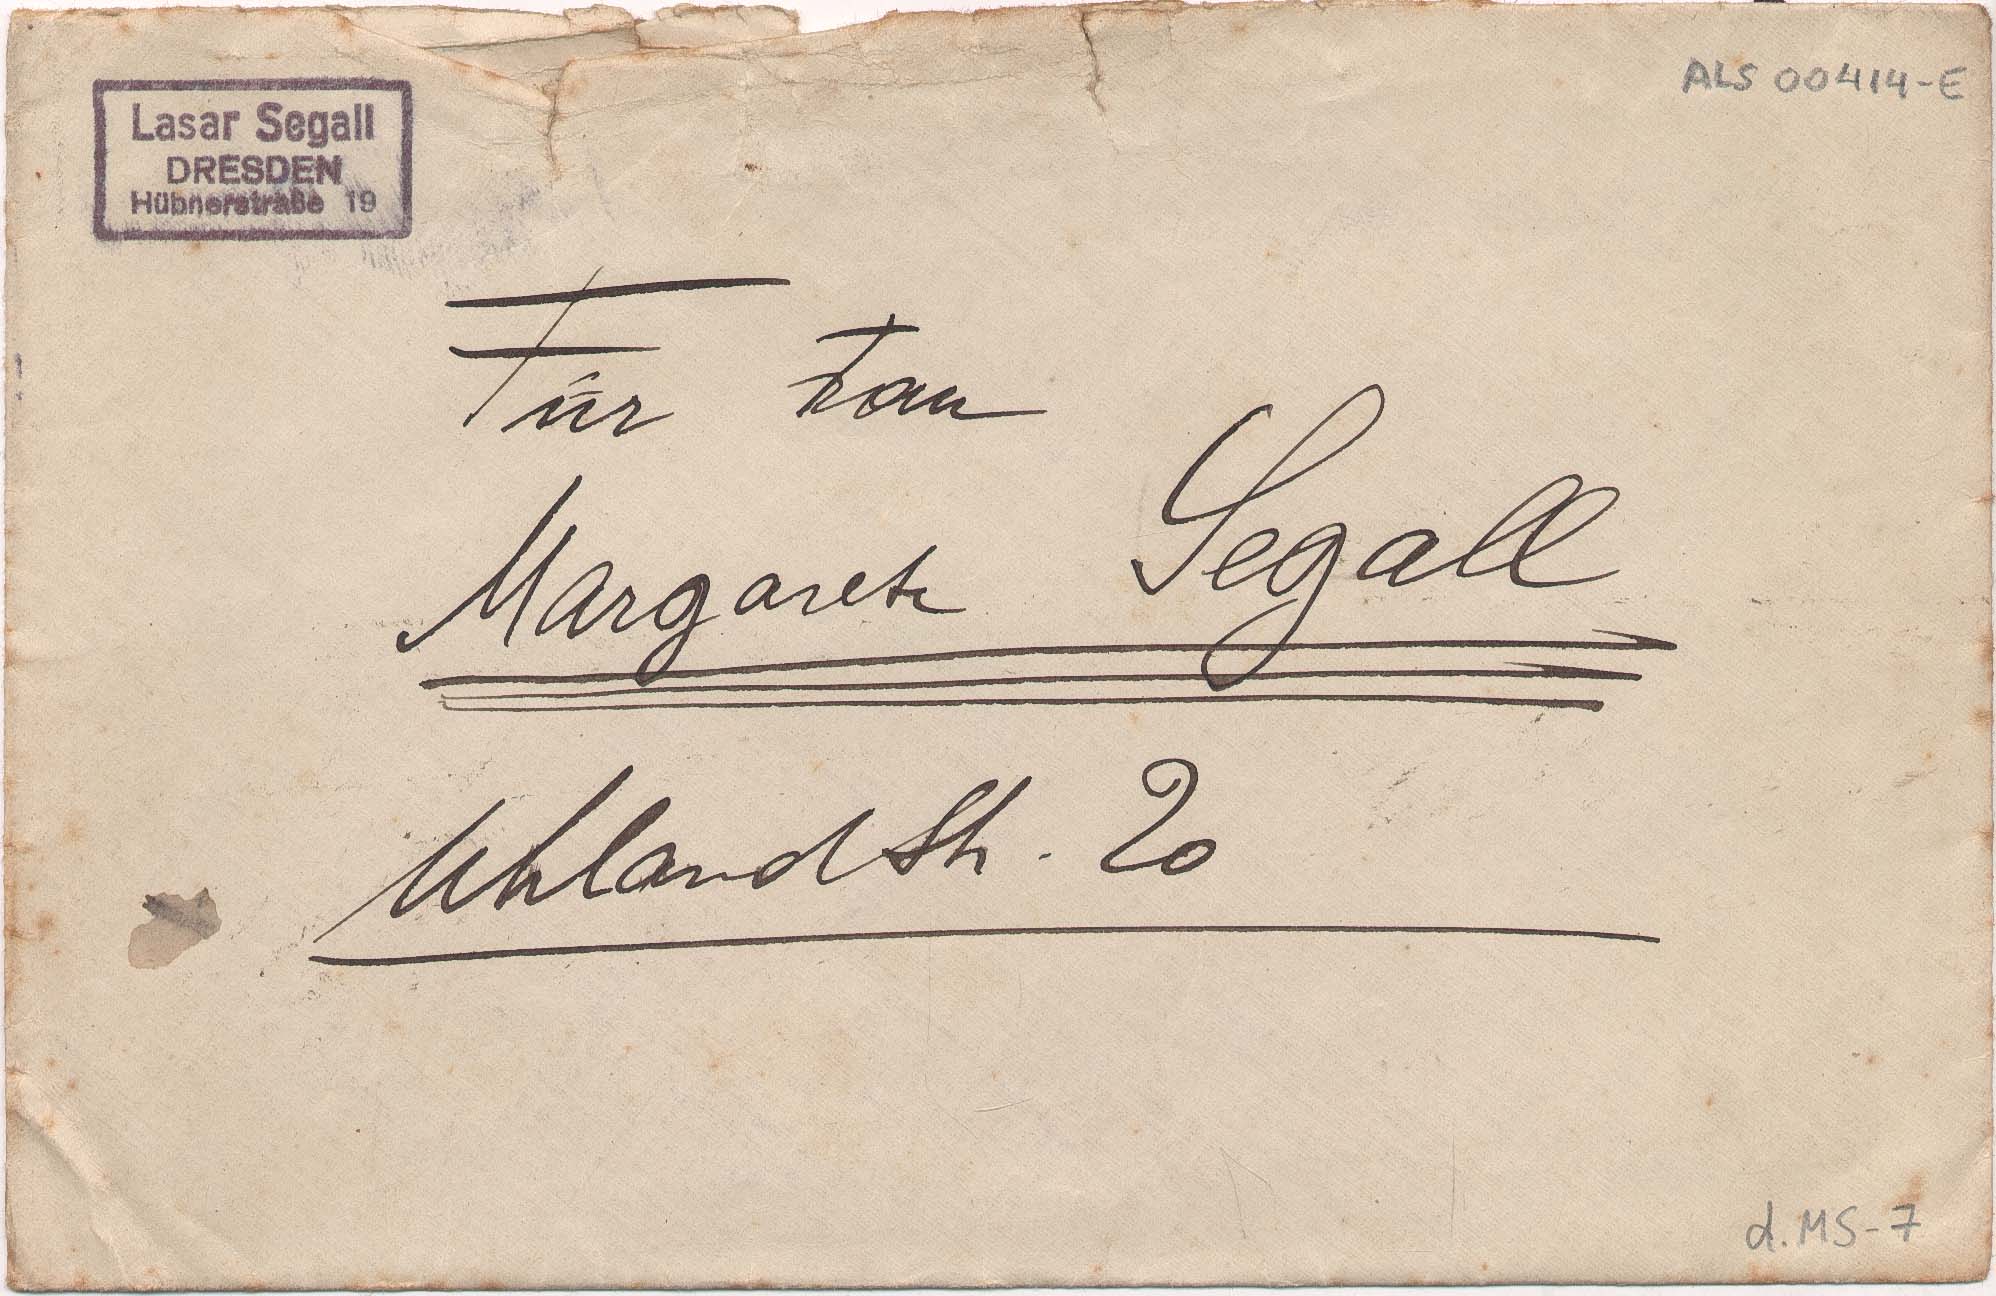 Lasar Segall
DRESDEN
Hübnerstraße 19
ALS 00414-E
Für Frau
Margarete Segall
Uhland Str. 20
d. MS-7